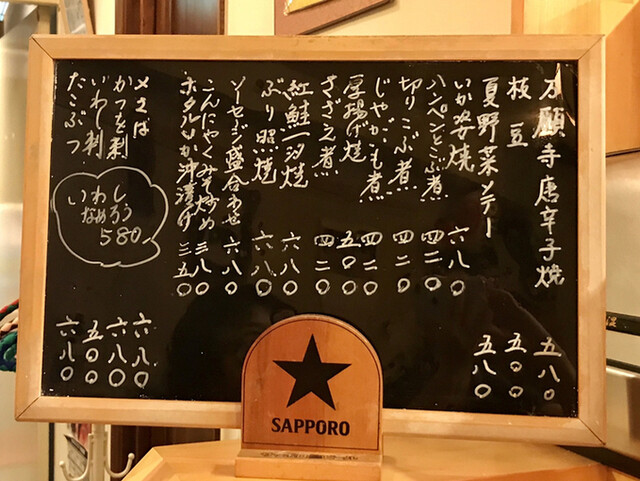 本願寺唐辛子焼 五八〇
枝豆 五〇〇
夏野菜ソテー 五八〇
いか姿焼 六八〇
ハンペンとこぶ煮 四二〇
切りこぶ煮 四二〇
じゃがいも煮 四二〇
厚揚げ焼 五〇〇
さざえ煮 四二〇
紅鮭一汐焼 六八〇
ぶり照焼 六八〇
ソーセージ盛合わせ 六八〇
こんにゃくみそ炒め 三八〇
ホタルいか沖漬け 三五〇
〆さば 六八〇
かつを刺 六八〇
いわし刺 五〇〇
たこぶつ 六八〇
いわし
なめろう
580
SAPPORO